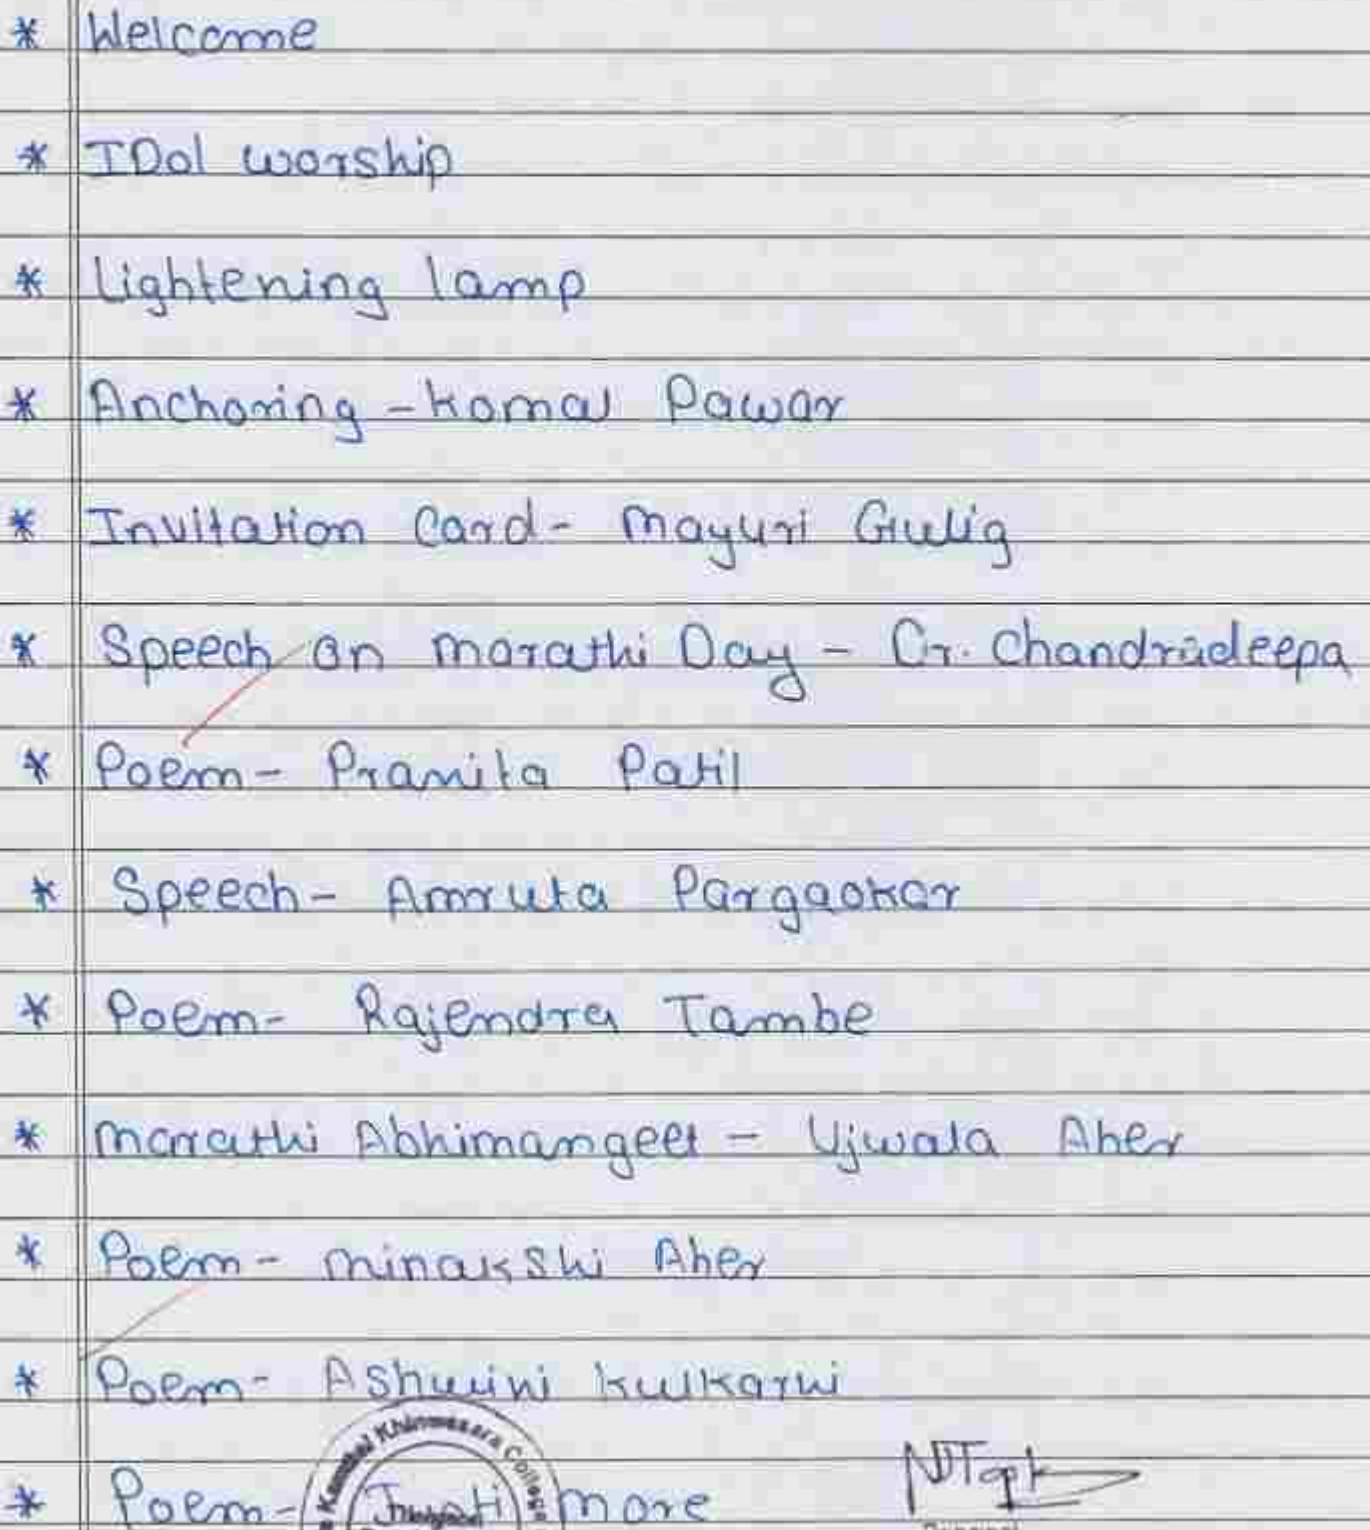 * Welcome
* IDol worship
* Lightening lamp
* Anchoring - Komal Pawar
* Invitation Card - Mayuri
* Speech on marathi Day - Chandradeepa
* Poem - Pramila Patil
* Speech - Amruta Pargaokar
* Poem - Rajendra Tambe
* Marathi Abhimangeet - Ujwala Aher
* Poem - Minakshi Aher
* Poem - Ashwini Kulkarni
Khinwasara College
* Poem - Jyoti More
Principal